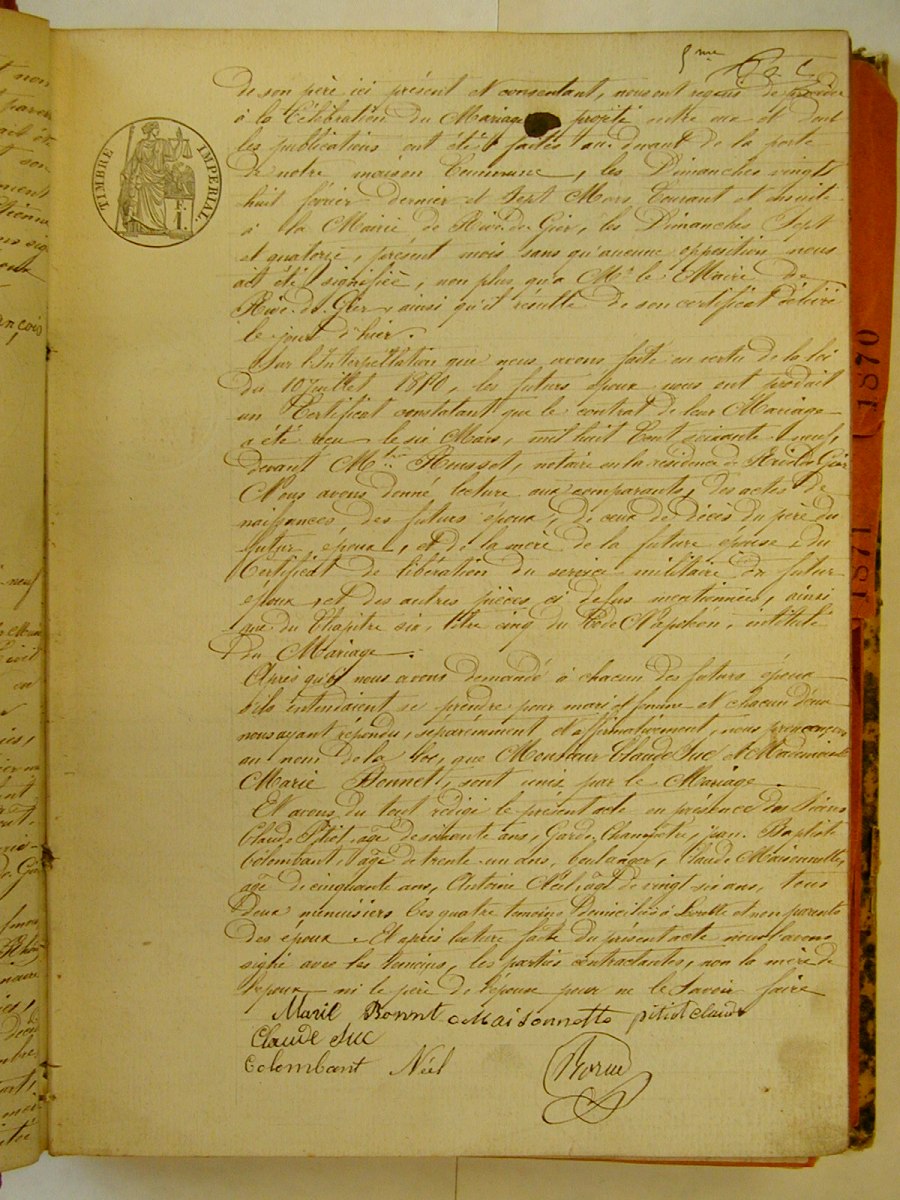 5me
de son père ici présent et consentant, nous ont requis de procéder
à la Célébration du Mariage projeté entre eux et dont
les publications ont été faites au devant de la porte
de notre maison Commune, les Dimanches vingt
huit février dernier et Sept Mars Courant et ensuite
à la Mairie de Rive de Gier, les Dimanches Sept
et quatorze, présent mois sans qu'aucune opposition nous
ait été signifiée, non plus qu'à Mr le Maire de
Rive de Gier, ainsi qu'il résulte de son certificat délivré
le jour d'hier.
Sur l'Interpellation que nous avons faite en vertu de la loi
du 10 Juillet 1850, les futurs époux nous ont produit
un Certificat constatant que le contrat de leur Mariage
a été reçu le six Mars, mil huit Cent soixante neuf,
devant Mtre Rousset, notaire en la résidence de Rive de Gier
Nous avons donné lecture aux comparants, des actes de
naissances, des futurs époux, de ceux de décès du père du
futur époux, et de la mère de la future épouse, du
Certificat de libération du service militaire du futur
époux et des autres pièces ci dessus mentionnées, ainsi
que du Chapitre six, titre cinq du Code Napoléon, intitulé
du Mariage.
Après quoi nous avons demandé à chacun des futurs époux
s'ils entendaient se prendre pour mari et femme et chacun d'eux
nous ayant répondu, séparément et affirmativement, nous prononçons
au nom de la Loi, que Monsieur Claude Suc et Mademoiselle
Marie Bonnet, sont unis par le Mariage
Et avons du tout rédigé le présent acte en présence des Sieurs
Claude Pitiot, âgé de soixante ans, Garde Champêtre, Jean Baptiste
Colombant, âgé de trente un ans, boulanger, Claude Maisonnette,
âgé de cinquante ans, Antoine Néel, âgé de vingt six ans, tous
deux menuisiers les quatre témoins domiciliés à et non parents
des époux. Et après lecture faite du présent acte nous l'avons
signé avec les témoins, les parties contractantes, non la mère de
l'époux ni le père de l'épouse pour ne le savoir faire
Marie Bonnt Maisonnette pitiot claude
Claude Suc
Colombant Néel
TIMBRE IMPERIAL
1 F.
1870
1871